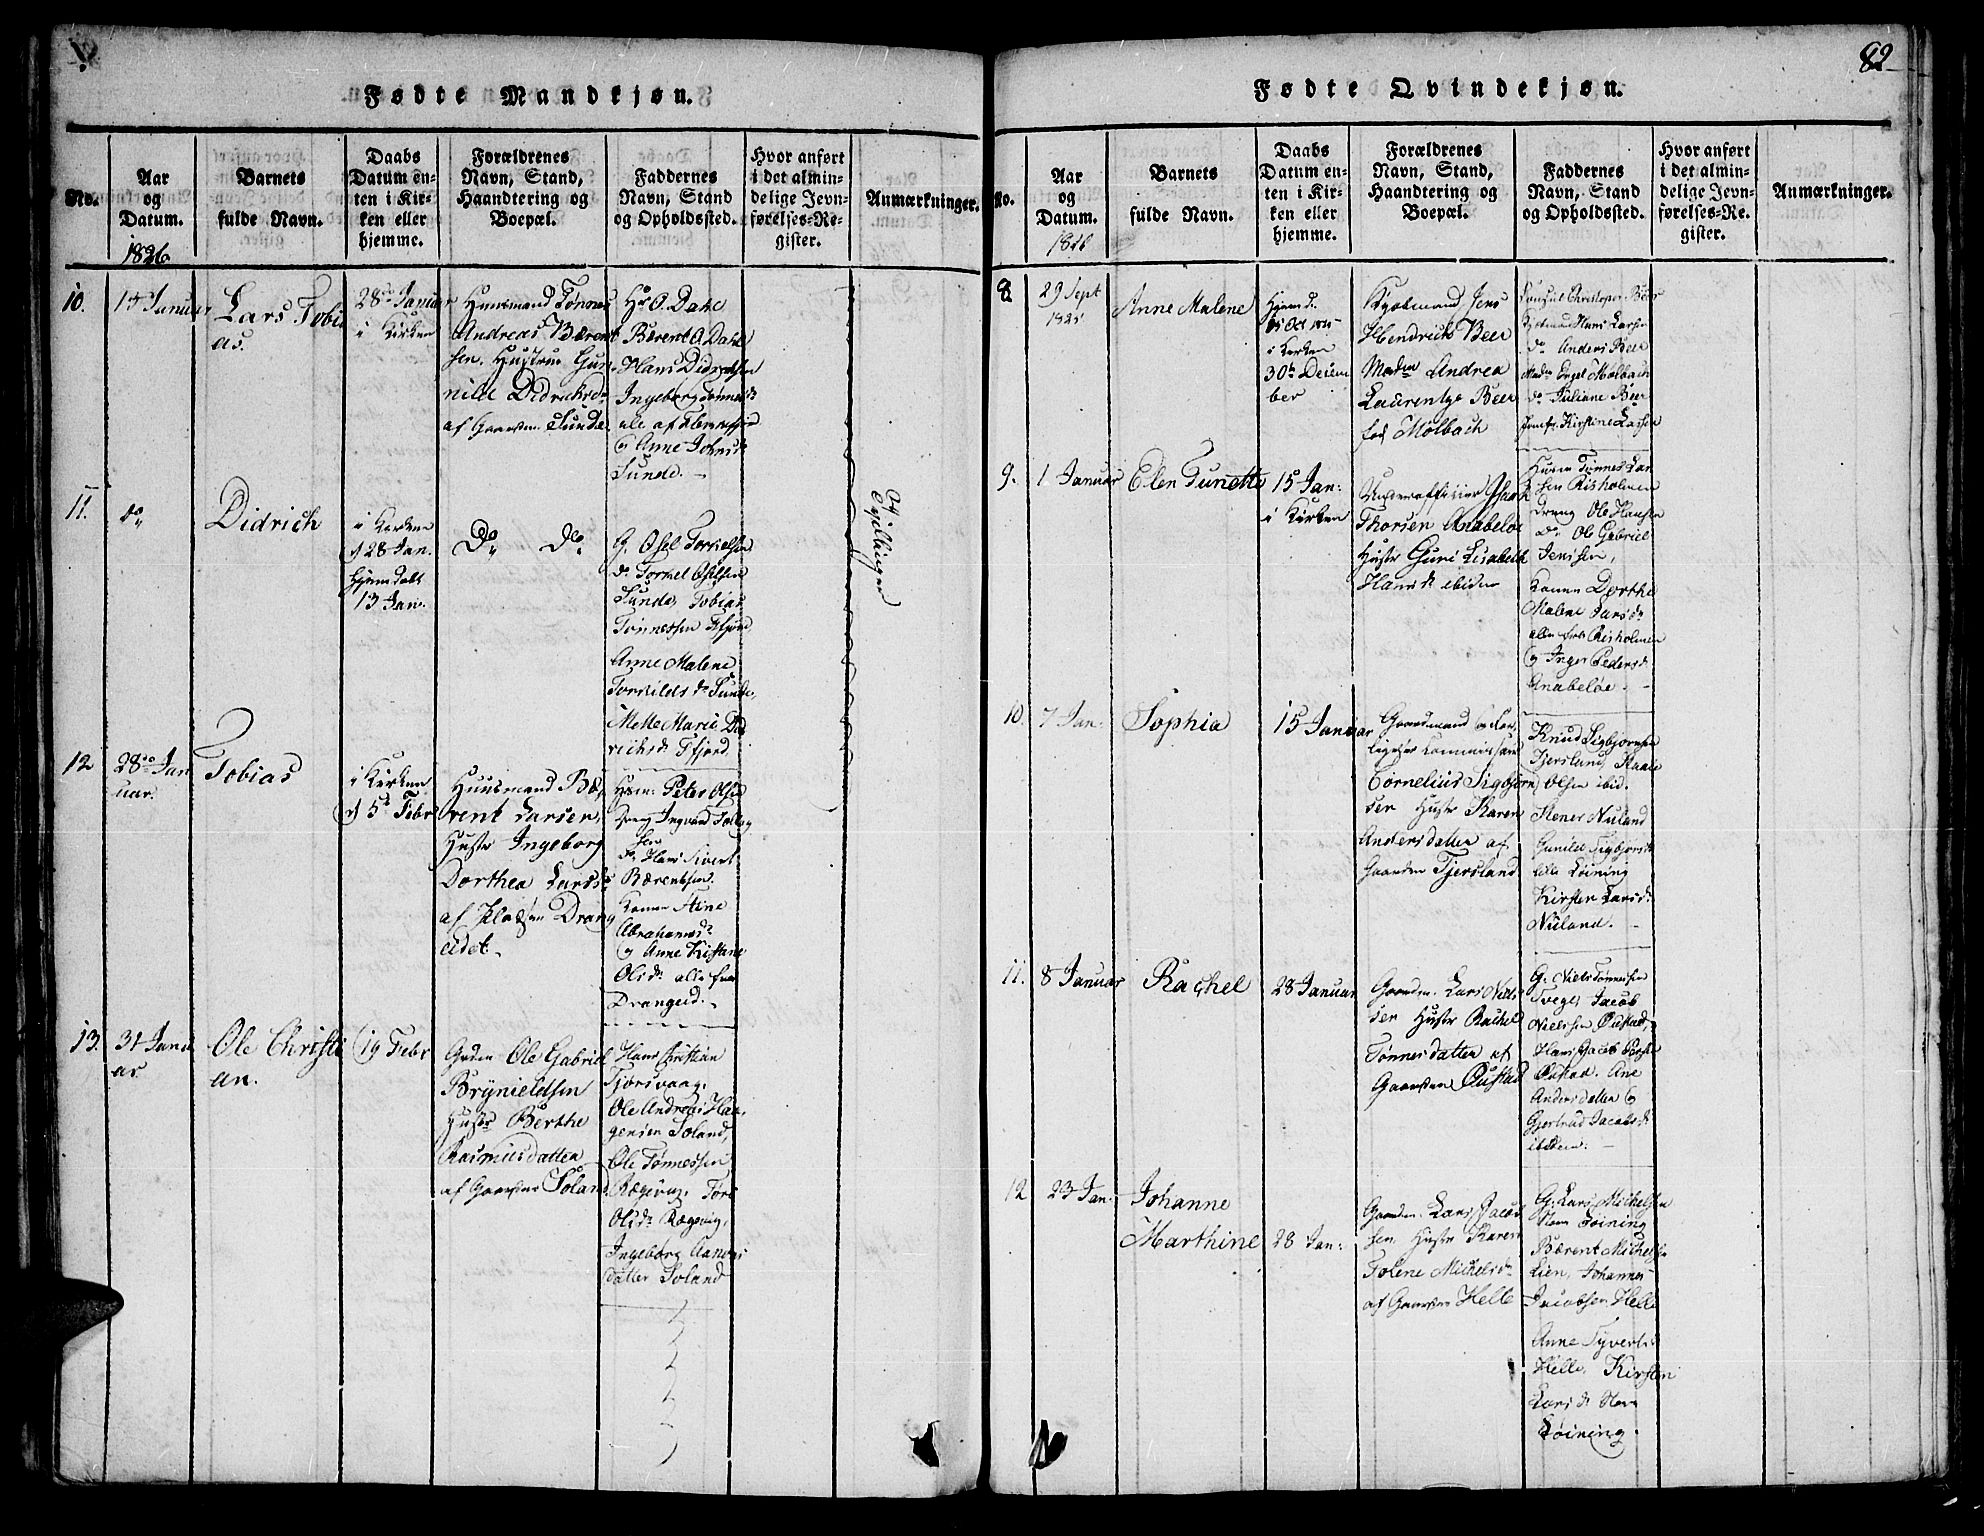 Fødte Mandkjøn.
No.
Aar
og
Datum.
1826
Barnets
fulde Navn.
Daabs
Datum en-
ten i Kir-
ken eller
hjemme.
Forældrenes
Navn, Stand,
Haandtering og
Boepæl.
Faddernes
Navn, Stand
og Opholdssted.
Hvor anført
i det almin-
delige Jevn-
førelses-Re-
gister.
Anmærkninger.
10.
14 Januar
Lars Tobi
as.
28de Januar
i Kirken
Huusmand Tønnes
Andreas Bærent
sen, Hustrue Gu
nild Didrichsd.
af Gaarden Sunde
Hr O. Dahl
Bærent O. Dahl
Hans Didrichsen
Ingeborg Tønnesd.
alle af
og Anne Johnsd.
Sunde. -
11.
do
Didrich
i Kirken
d 28 Jan.
Hjemdøbt
13 Jan.
Do Do
G. Osel Torkelsen
do Torkel Oselsen
Sunde, Tobias
Tønnessen
Anne Malene
Torkilds d. Sunde,
Mette Marie Did
richsd.
Tvillinger
12
28de Jan
uar.
Tobias
i Kirken
d 5te Febr
Huusmand Bæ
rent Larsen,
Hustr Ingeborg
Dorthea Larsd.
af Drang
eidet. -
Huusm: Peter Olsen
Dreng Ingvard
sen
do Hans Sivert
Bærentsen.
Konen Stine
Abrahamsd.
og Anne Kistine
Olsd. alle fra
Drangeid. -
13.
31 Janu
ar.
Ole Christi
an.
19 Febr
Grden Ole Gabriel
Brynieldsen
Hustr Berthe
Rasmusdatter
af Gaarden Soland
Hans Christian
Tjørsvaag,
Ole Andreas Haa
gensen Soland,
Ole Tønnessen
Rægevig, Tori
Olsd. Rægevig,
Ingeborg Aanens
datter Soland
82
Fødte Qvindekjøn.
No.
Aar
og
Datum.
1826
Barnets
fulde Navn.
Daabs
Datum en-
ten i Kir-
ken eller
hjemme.
Forældrenes
Navn, Stand,
Haandtering og
Boepæl.
Faddernes
Navn, Stand
og Opholdssted.
Hvor anført
i det almin-
delige Jevn-
førelses-Re-
gister.
Anmærkninger.
8
29 Sept
1825
Anne Malene
Hjemd.
i Kirken
30te Decem
ber
Kjøbmand Jens
Hendrich Beer
Madm Andrea
Laurentze Beer
fød Mølbach
Consul Christopher Beer
Kjøbman Hans Larsen
do Anders Beer
Madm Engel Mølbach
do Juliane Beer
Jomfr. Kirstine Larsen
9.
1 Januar
Elen Tunette
15 Jan:
i Kirken
Underofficier Isaach
Thorsen Anabeløe
Hustr Guri Lisabeth
Hansd. ibidem
Husm Tønnes Lar
sen Risholmen
Dreng Ole Hansen
do Ole Gabriel
Jenssen,
Konen Dorthe
Malene Larsd.
alle fra Risholmen
og Inger Pedersd.
Anabeløe. -
10.
7 Jan.
Sophia
15 Januar
Gaardmand
Cornelius Sigbjørn
sen Hustr Karen
Andersdatter af
Gaarden Tjersland
Knud Sigbjørnsen
Tjersland,
Olsen ibid.
Stener Nuland
Gunild Sigbjørnsd.
Løining
Kirsten Larsd.
Nuland. -
11.
8 Januar
Rachel
28 Januar
Gaardm. Lars Niels
sen Hustr Rachel
Tønnesdatter af
Gaarden Øustad
G. Niels Tønnessen
Tvege, Jacob
Nielsen Øustad,
Hans Jacob
Øustad. Ane
Andersdatter og
Gjertrud Jacobsd.
ibidem. -
12
23 Jan.
Johanne
Marthine
28 Jan:
Gaardm. Lars Jacob
sen Hustr Karen
Tolene Michelsd.
af Gaarden Helle
G. Lars Michelsen
Løining
Bærent Michels
Lien, Johannes
Jacobsen Helle
Anne Syverts
Helle, Kirsten
Larsd.
Løining.